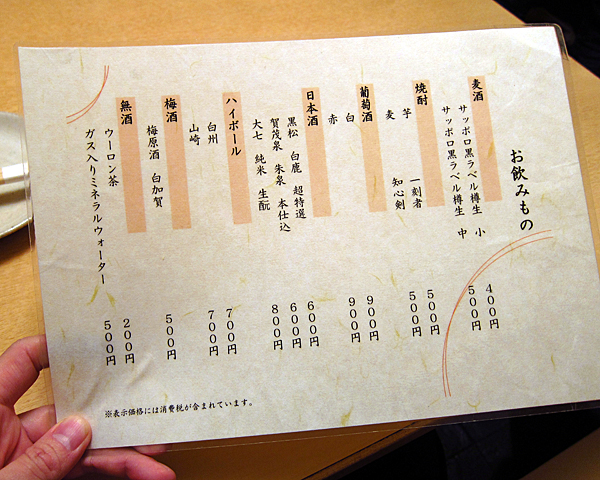 お飲みもの
麦酒
サッポロ黒ラベル樽生 小 400円
サッポロ黒ラベル樽生 中 500円
焼酎
芋 一刻者 500円
麦 知心剣 500円
葡萄酒
白 900円
赤 900円
日本酒
黒松 白鹿 超特選 600円
賀茂泉 朱泉 本仕込 600円
大七 純米 生酛 800円
ハイボール
白州 700円
山崎 700円
梅酒
梅原酒 白加賀 500円
無酒
ウーロン茶 200円
ガス入りミネラルウォーター 500円
※表示価格には消費税が含まれています。